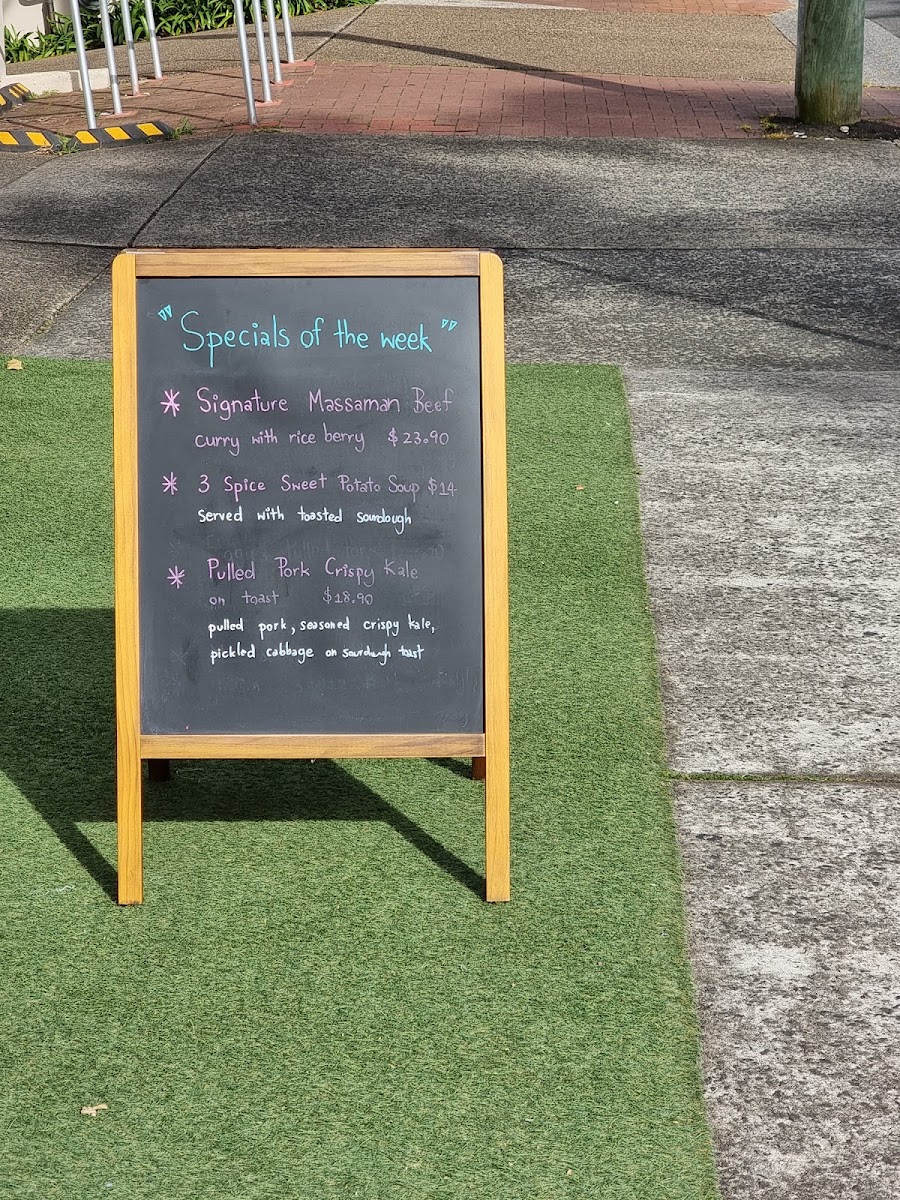 "Specials of the week"
* Signature Massaman Beef
curry with rice berry $23.90
* 3 Spice Sweet Potato Soup $14
Served with toasted sourdough
* Pulled Pork Crispy Kale
on toast $18.90
pulled pork, seasoned crispy kale,
pickled cabbage on sourdough toast